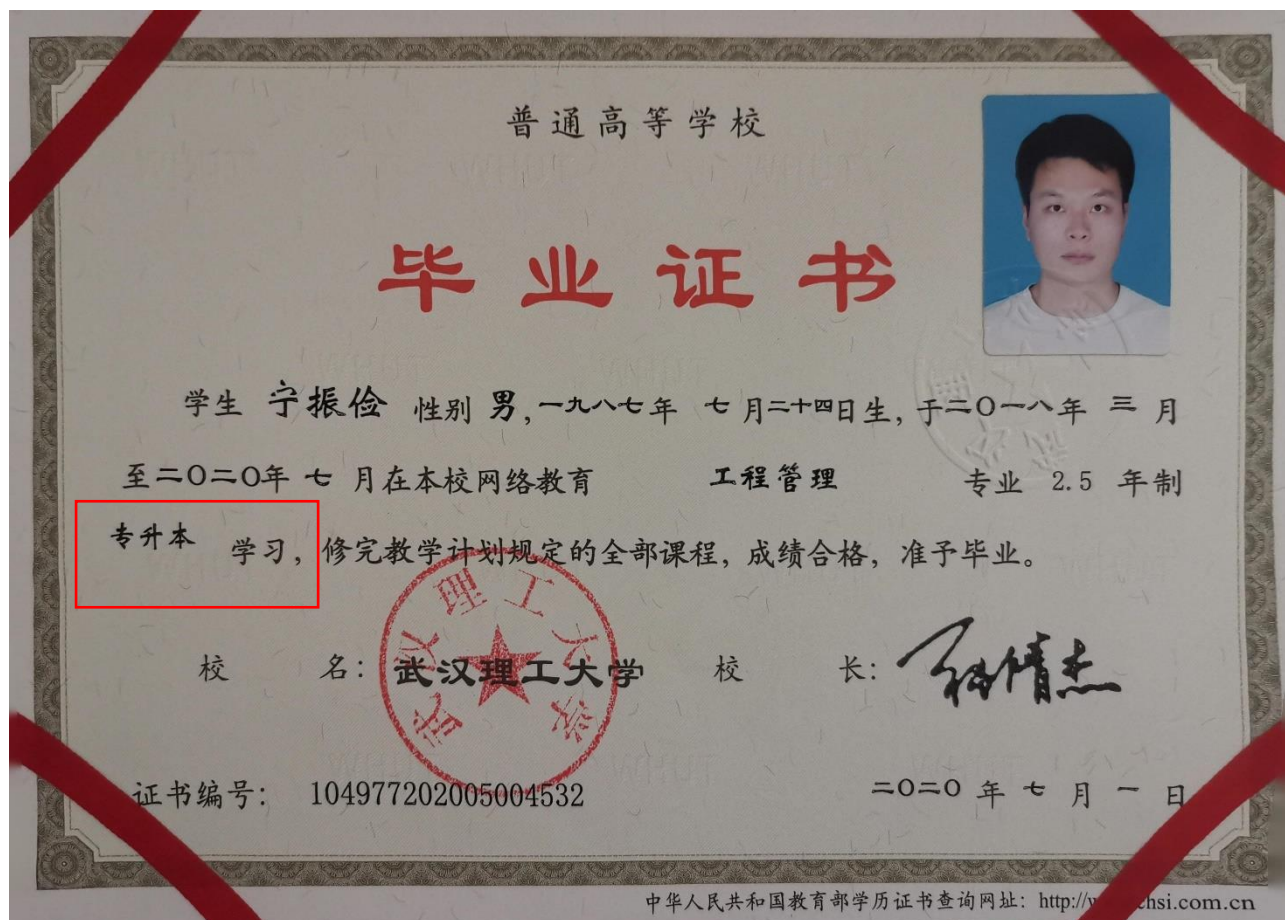 普通高等学校
毕业证书
学生 宁振俭 性别 男,一九八七年 七 月二十四日生,于二〇一八年 三 月
至二〇二〇年 七 月在本校网络教育 工程管理 专业 2.5 年制
专升本 学习,修完教学计划规定的全部课程,成绩合格,准予毕业。
校 名:武汉理工大学 校 长:
武汉理工大学
证书编号: 104977202005004532 二〇二〇 年 七 月 一 日
中华人民共和国教育部学历证书查询网址: http://w hsi.com.cn